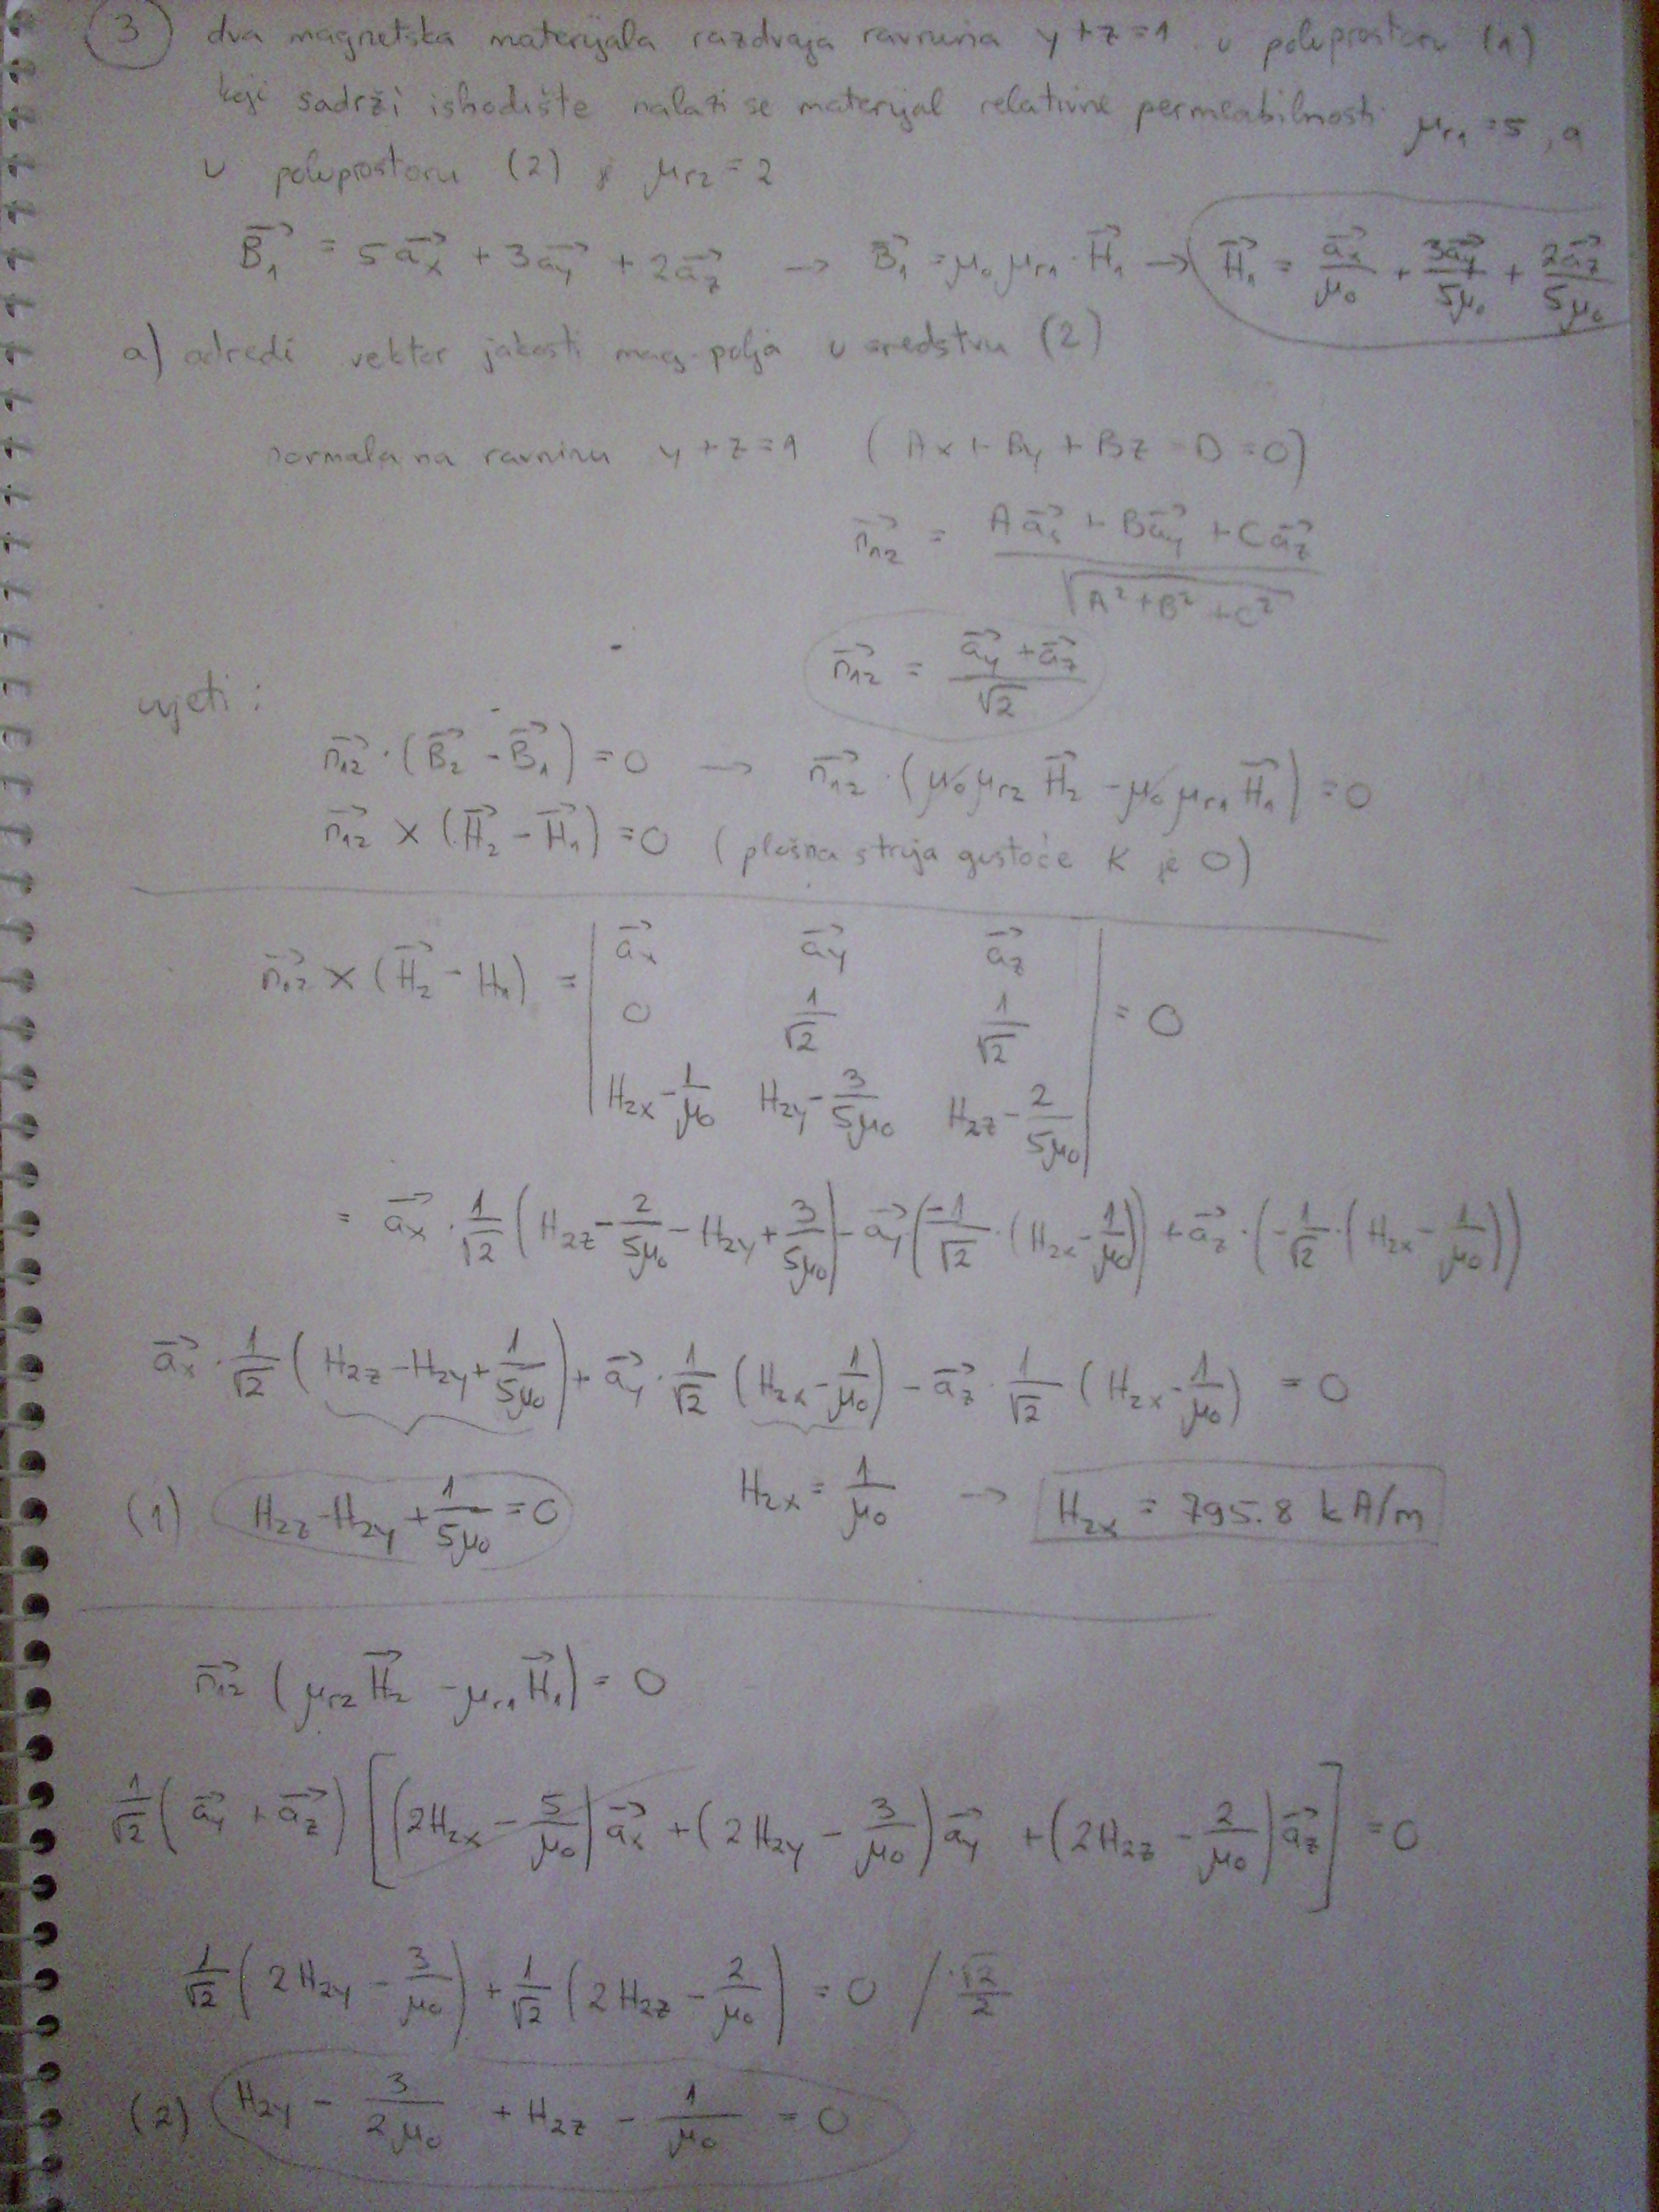 3 dva magnetska materijala razdvaja ravnina y + z = 1 u poluprostoru (1)
koji sadrži ishodište nalazi se materijal relativne permeabilnosti μr1 = 5, a
u poluprostoru (2) je μr2 = 2
B1 = 5ax + 3ay + 2az → B1 = μ0 μr1 · H1 → H1 = ax/μ0 + 3ay/5μ0 + 2az/5μ0
a) odredi vektor jakosti mag. polja u sredstvu (2)
normala na ravninu y + z = 1 (Ax + By + Bz - D = 0)
n12 = (A ax + B ay + C az) / √(A² + B² + C²)
n12 = (ay + az) / √2
uvjeti:
n12 · (B2 - B1) = 0 → n12 · (μ0 μr2 H2 - μ0 μr1 H1) = 0
n12 × (H2 - H1) = 0 (plošna struja gustoće K je 0)
n12 × (H2 - H1) = | ax ay az |
| 0 1/√2 1/√2 | = 0
| H2x - 1/μ0 H2y - 3/5μ0 H2z - 2/5μ0 |
= ax · 1/√2 (H2z - 2/5μ0 - H2y + 3/5μ0) - ay (-1/√2 · (H2x - 1/μ0)) + az · (-1/√2 · (H2x - 1/μ0))
ax · 1/√2 (H2z - H2y + 1/5μ0) + ay · 1/√2 (H2x - 1/μ0) - az · 1/√2 (H2x - 1/μ0) = 0
(1) H2z - H2y + 1/5μ0 = 0 H2x = 1/μ0 → H2x = 795.8 kA/m
n12 (μr2 H2 - μr1 H1) = 0
1/√2 (ay + az) [(2H2x - 5/μ0) ax + (2H2y - 3/μ0) ay + (2H2z - 2/μ0) az] = 0
1/√2 (2H2y - 3/μ0) + 1/√2 (2H2z - 2/μ0) = 0 / · √2/2
(2) H2y - 3/2μ0 + H2z - 1/μ0 = 0